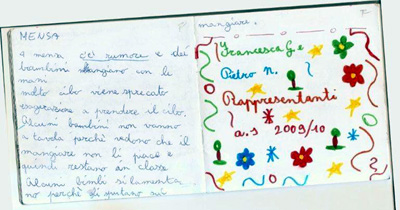 MENSA
A mensa c'è rumore e dei
bambini mangiano con le
mani.
molto cibo viene sprecato
esagerazione a prendere il cibo.
Alcuni bambini non vanno
a tavola perchè vedono che il
mangiare non li piace e
quindi restano in classe
Alcuni bimbi si lamenta
no perchè gli
mangiare.
Francesca G. e
Pietro N.
Rappresentanti
a.s 2009/10